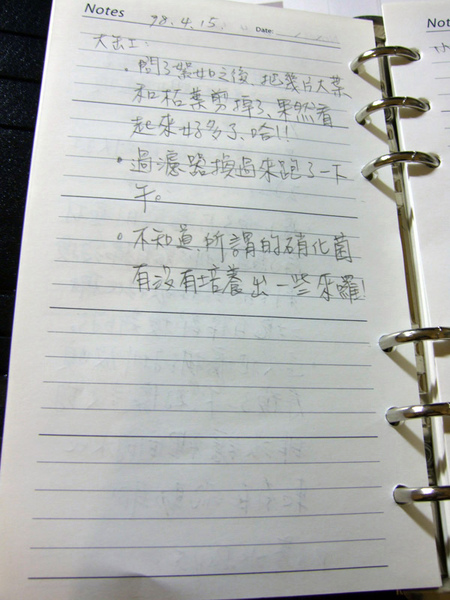 Notes
98.4.15.
Date:
大缸:
• 問了絮如之後,把幾片大葉
和枯葉剪掉了,果然看
起來好多了,哈!!
• 過濾器換過來跑了一下
午。
• 不知道,所謂的硝化菌
有沒有培養出一些來囉!
Not